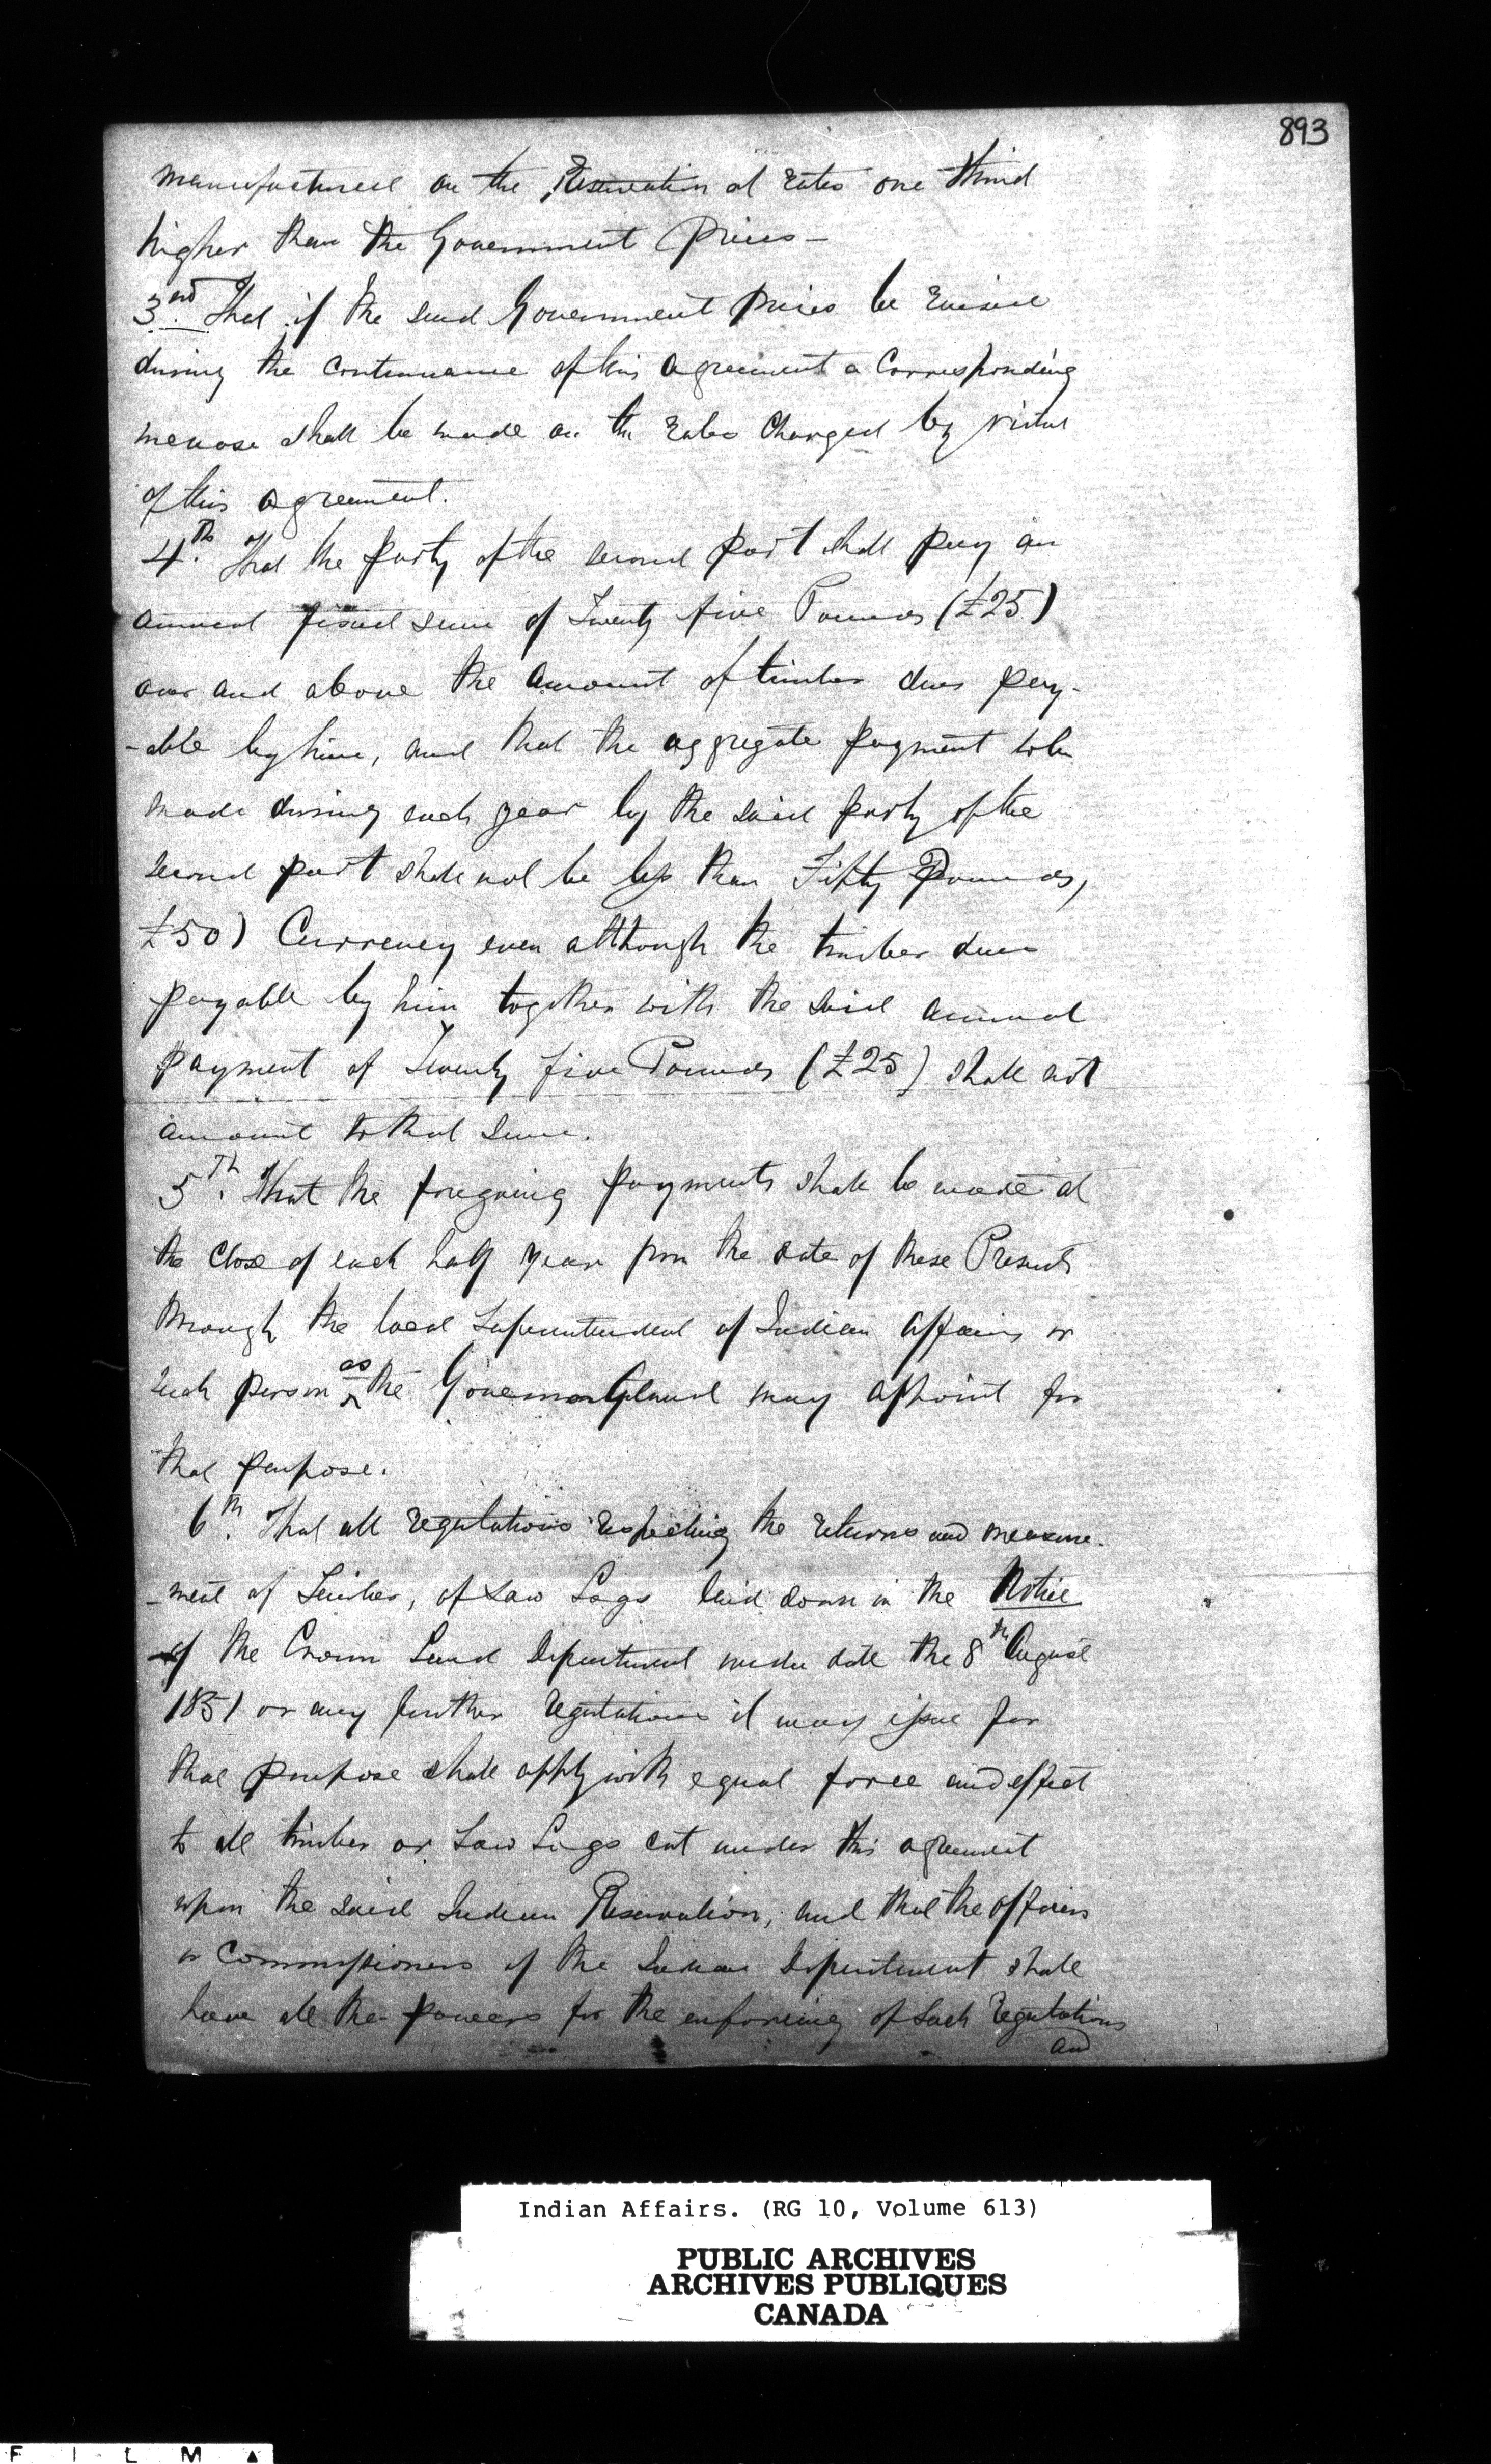 893
manufactured on the Reservation at rates one third
higher than the Government prices —
3rd. That if the said Government prices be raised
during the continuance of this agreement a Corresponding
increase shall be made on the rates Charged by virtue
of this agreement.
4th. That the party of the second part shall pay an
annual fixed sum of Twenty five Pounds (£25)
over and above the amount of timber dues pay-
-able by him, and that the aggregate payment to be
made during each year by the said party of the
second part shall not be less than Fifty Pounds,
£50) Currency even although the timber dues
payable by him together with the said annual
payment of Twenty five Pounds (£25) shall not
amount to that sum.
5th. That the foregoing payments shall be made at
the close of each half year from the date of these Presents
through the local Superintendent of Indian Affairs or
such person as the Governor General may appoint for
that purpose.
6th. That all regulations respecting the returns and measure-
-ment of Timber, of Saw Logs laid down in the Notice
of the Crown Land Department under date the 8th August
1851 or any further regulations it may issue for
that purpose shall apply with equal force and effect
to all timber or Saw Logs cut under this agreement
upon the said Indian Reservation, and that the officers
or Commissioners of the Indian Department shall
have all the powers for the enforcing of such regulations
and
Indian Affairs. (RG 10, Volume 613)
PUBLIC ARCHIVES
ARCHIVES PUBLIQUES
CANADA
F I L M